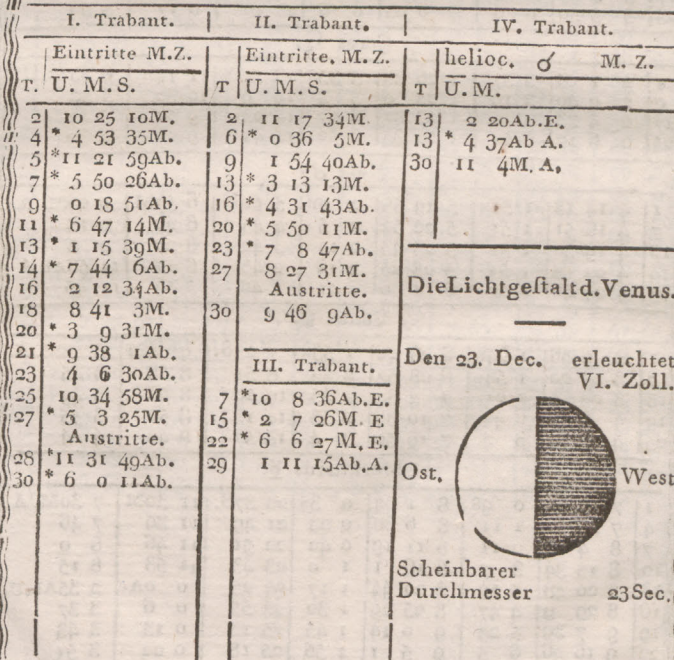 I. Trabant.
Eintritte M.Z.
T. U. M. S.
2 10 25 10M.
4 * 4 53 35M.
5 *11 21 59Ab.
7 * 5 50 26Ab.
9 0 18 51Ab.
11 * 6 47 14M.
13 * 1 15 39M.
14 * 7 44 6Ab.
16 2 12 34Ab.
18 8 41 3M.
20 * 3 9 31M.
21 * 9 38 1Ab.
23 4 6 30Ab.
25 10 34 58M.
27 * 5 3 25M.
Austritte.
28 *11 31 49Ab.
30 * 6 0 11Ab.
II. Trabant.
Eintritte. M.Z.
T U. M. S.
2 11 17 34M.
6 * 0 36 5M.
9 1 54 40Ab.
13 * 3 13 13M.
16 * 4 31 43Ab.
20 * 5 50 11M.
23 * 7 8 47Ab.
27 8 27 31M.
Austritte.
30 9 46 9Ab.
III. Trabant.
7 *10 8 36Ab.E.
15 * 2 7 26M. E
22 * 6 6 27M. E.
29 1 11 15Ab.A.
IV. Trabant.
helioc. ☌ M. Z.
T U. M.
13 2 20Ab.E.
13 * 4 37Ab A.
30 11 4M. A.
Die Lichtgeſtalt d. Venus.
Den 23. Dec. erleuchtet
VI. Zoll.
Oſt. West
Scheinbarer
Durchmesser 23 Sec.